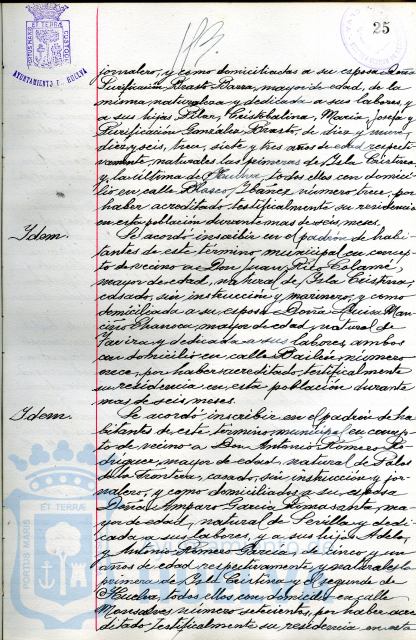 25
AYUNTAMIENTO DE HUELVA
jornalero, y como domiciliadas a su esposa Doña
Purificación Brasto Barra, mayor de edad, de la
misma naturaleza y dedicada a sus labores y
a sus hijas Pilar, Cristobalina, María Josefa y
Purificación González Brasto, de diez y nueve,
diez y seis, trece, siete y tres años de edad respecti-
vamente, naturales las primeras de Isla Cristina
y la última de Huelva, todos ellos con domici-
lio en calle Blasco Ibáñez número trece, por
haber acreditado testificalmente su residencia
en esta población durante mas de seis meses.
Idem. Se acordó inscribir en el padrón de habi-
tantes de este término municipal en concep-
to de vecino a Don Juan Rito Colamé,
mayor de edad, natural de Isla Cristina,
casado, sin instrucción y marinero, y como
domiciliada a su esposa Doña
mayor de edad, natural de
Tavira y dedicada a sus labores, ambos
con domicilio en calle Bailén número
once, por haber acreditado testificalmente
su residencia en esta población durante
mas de seis meses.
Idem. Se acordó inscribir en el padrón de ha-
bitantes de este término municipal en concep-
to de vecino a Don Antonio Romero Ro-
dríguez, mayor de edad, natural de Palos
de la Frontera, casado, sin instrucción y jor-
nalero, y como domiciliados a su esposa
Doña Amparo García Romasanta, ma-
yor de edad, natural de Sevilla y dedi-
cada a sus labores, y a sus hijos Adela,
y Antonio Romero García, de cinco y un
años de edad respectivamente, y naturales la
primera de Isla Cristina y el segundo de
Huelva, todos ellos con domicilio en calle
número setecientos, por haber acre-
ditado testificalmente su residencia en esta
PORTUS MARIS ET TERRAE CUSTODIA